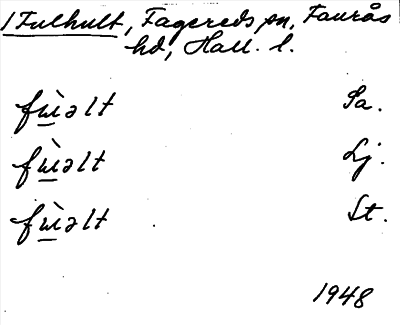 1 Fulhult, Fagereds sn, Faurås
hd, Hall. l.
fùəlt Sa.
fùəlt Lj.
fùəlt St.
1948